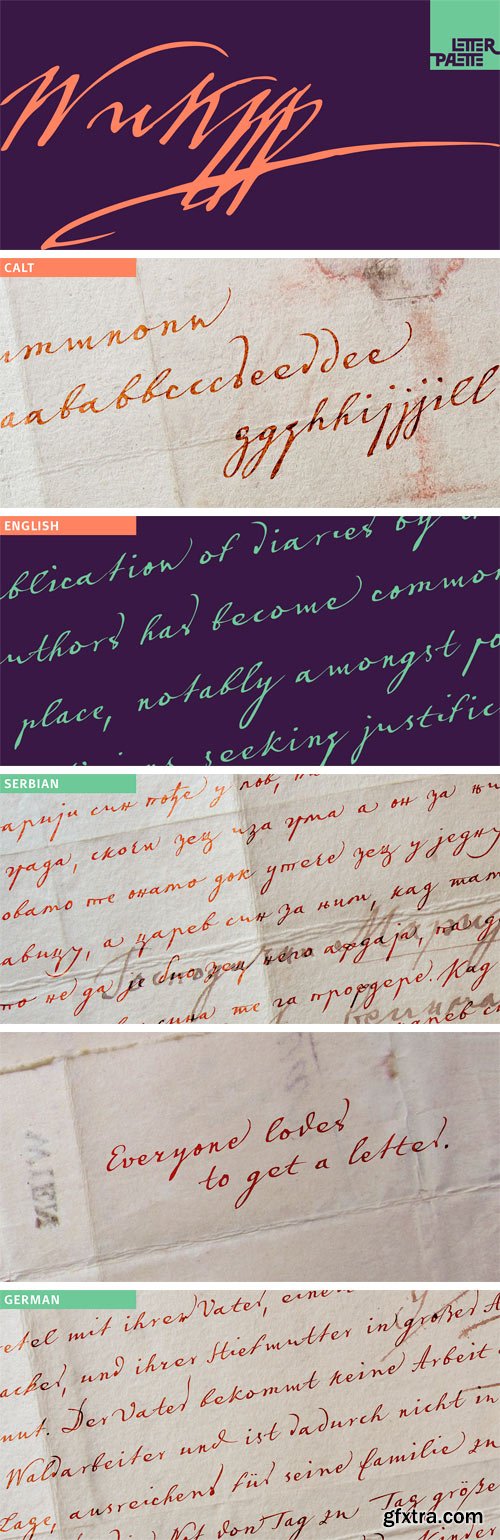 Wuk
LETTER
PALETTE
CALT
ımmwnonw
aababbcccdeeddee
ggghhijjjjill
ENGLISH
blication of diaries by
uthors has become common
place, notably amongst po
seeking justific
SERBIAN
арији син пође у лов,
града, скочи зец иза грма а он за њи
овато те онато док утече зец у једну
авицу, а царев син за њим, кад тат
то не да је био зец него аждаја, па д
сина те га прождере. Кад
WIEN
Everyone loves
to get a letter.
GERMAN
retel mit ihrer Vater, einen
acker, und ihrer Stiefmutter in großer A
mut. Der Vater bekommt keine Arbeit
Waldarbeiter und ist dadurch nicht in
Lage, ausreichend für seine Familie zu
Not von Tag zu Tag größe
gfxtra.com